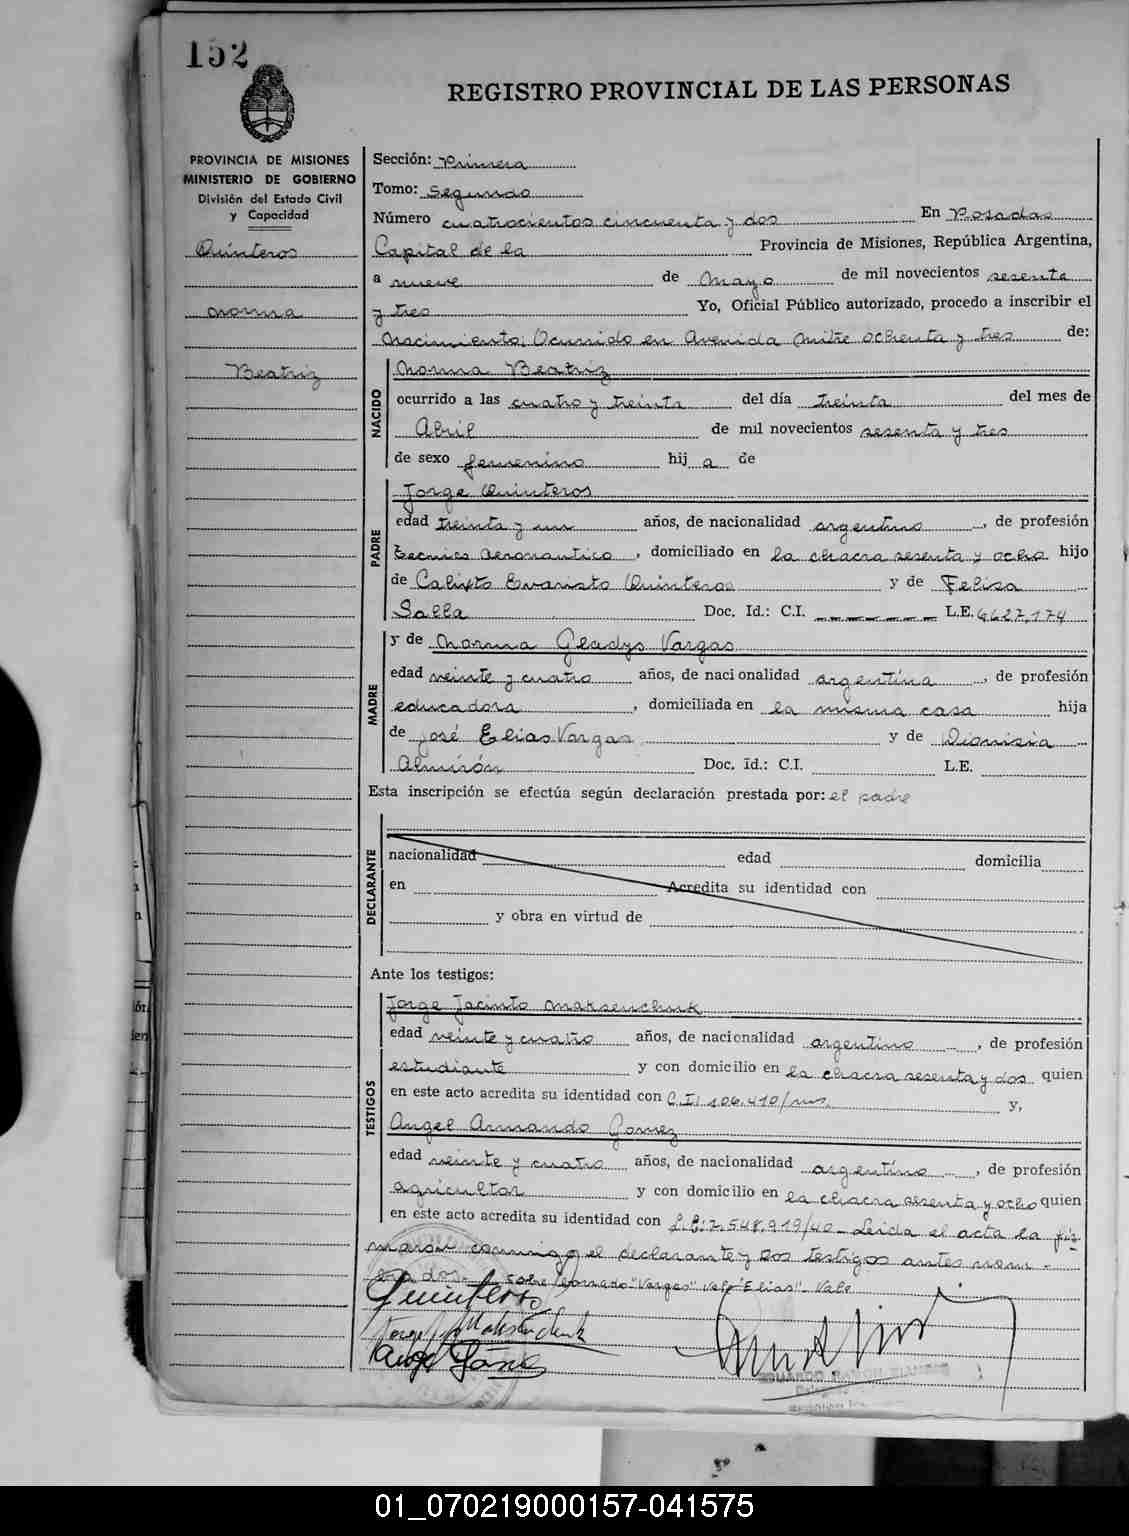 152
REGISTRO PROVINCIAL DE LAS PERSONAS
PROVINCIA DE MISIONES
MINISTERIO DE GOBIERNO
División del Estado Civil
y Capacidad
Quinteros
Norma
Beatriz
Sección: Primera
Tomo: Segundo
Número cuatrocientos cincuenta y dos En Posadas
Capital de la Provincia de Misiones, República Argentina,
a nueve de Mayo de mil novecientos sesenta
y tres Yo, Oficial Público autorizado, procedo a inscribir el
nacimiento. Ocurrido en Avenida Mitre ochenta y tres de:
NACIDO
Norma Beatriz
ocurrido a las cuatro y treinta del día treinta del mes de
Abril de mil novecientos sesenta y tres
de sexo femenino hij a de
PADRE
Jorge Quinteros
edad treinta y un años, de nacionalidad argentino, de profesión
tecnico aeronautico, domiciliado en la chacra sesenta y ocho hijo
de Calixto Evaristo Quinteros y de Felisa
Salla Doc. Id.: C.I. ------- L.E. 4627.174
MADRE
y de Norma Gladys Vargas
edad veinte y cuatro años, de nacionalidad argentina, de profesión
educadora, domiciliada en la misma casa hija
de José Elias Vargas y de Dionisia
Almirón Doc. Id.: C.I. L.E.
Esta inscripción se efectúa según declaración prestada por: el padre
DECLARANTE
nacionalidad edad domicilia
en Acredita su identidad con
y obra en virtud de
Ante los testigos:
TESTIGOS
Jorge Jacinto Maksenchuk
edad veinte y cuatro años, de nacionalidad argentino, de profesión
estudiante y con domicilio en la chacra sesenta y dos quien
en este acto acredita su identidad con C.I. 106.410/mns. y,
Angel Armando Gomez
edad veinte y cuatro años, de nacionalidad argentino, de profesión
agricultor y con domicilio en la chacra sesenta y ocho quien
en este acto acredita su identidad con L.E: 7.548.919/40 - Leida el acta la fir-
maron conmigo el declarante y los testigos antes nom-
rados. Sobre borrado "Vargas" vale "Elias". Vale
Quinteros
Jorge J. Maksenchuk
Angel Gómez
01_070219000157-041575